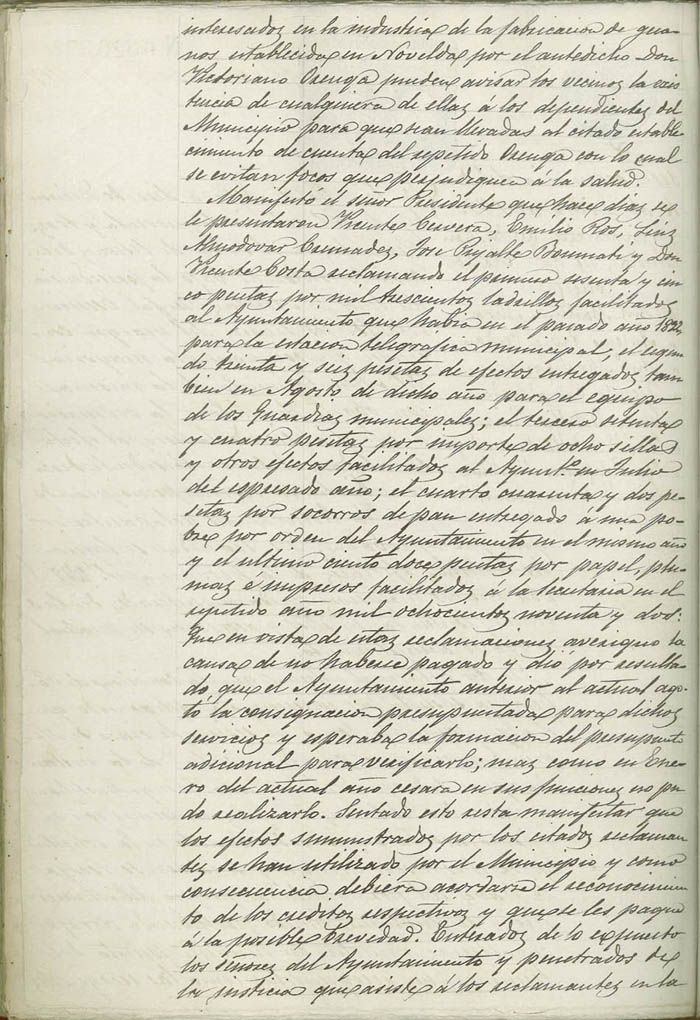 interesados en la industria de la fabricacion de gua-
nos establecida en Novelda por el antedicho Don
Victoriano Cenga pueden avisar los vecinos la exis
tencia de cualquiera de ellas á los dependientes del
Municipio para que sean llevadas al citado estable
cimiento de cuenta del repetido Cenga con lo cual
se evitan focos que perjudiquen á la salud.
Manifestó el señor Presidente que hace dias se
le presentaron Vicente Cervera, Emilio Ros, Luiz
Almodovar Cremades, Jose Rizalte Boumati y Don
Vicente Costa reclamando el primero sesenta y cin
co pesetas por mil trescientos ladrillos facilitados
al Ayuntamiento que habia en el pasado año 1892,
para la estacion telegrafica municipal, el segun
do treinta y seis pesetas de efectos entregados, tam
bien en Agosto de dicho año para el equipo
de los Guardias municipales; el tercero setenta
y cuatro pesetas por importe de ocho sillas
y otros efectos facilitados al Ayunt.º en Julio
del espresado año; el cuarto cuarenta y dos pe
setas por socorros de pan entregado á una po-
bre por orden del Ayuntamiento en el mismo año
y el ultimo ciento doce pesetas por papel, plu-
mas é impresos facilitados á la Secretaria en el
repetido año mil ochocientos noventa y dos:
Que en vista de estas reclamaciones averiguo la
causa de no haberse pagado y dió por resulta-
do, que el Ayuntamiento anterior al actual ago-
tó la consignacion presupuestada para dichos
servicios y esperaba la formacion del presupuesto
adicional para verificarlo; mas como en Ene-
ro del actual año cesara en sus funciones no pu
do realizarlo. Sentado esto resta manifestar que
los efectos suministrados por los citados reclaman
tes se han utilizado por el Municipio y como
consecuencia debiera acordarse el reconocimien
to de los creditos respectivos y que se les pague
á la posible brevedad. Enterados de lo expuesto
los señores del Ayuntamiento y penetrados de
la justicia que asiste á los reclamantes en la